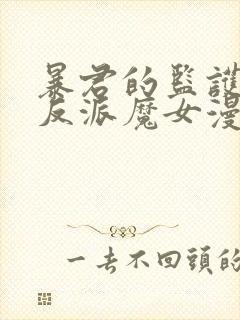 暴君的監護
反派魔女漫
一去不回頭的